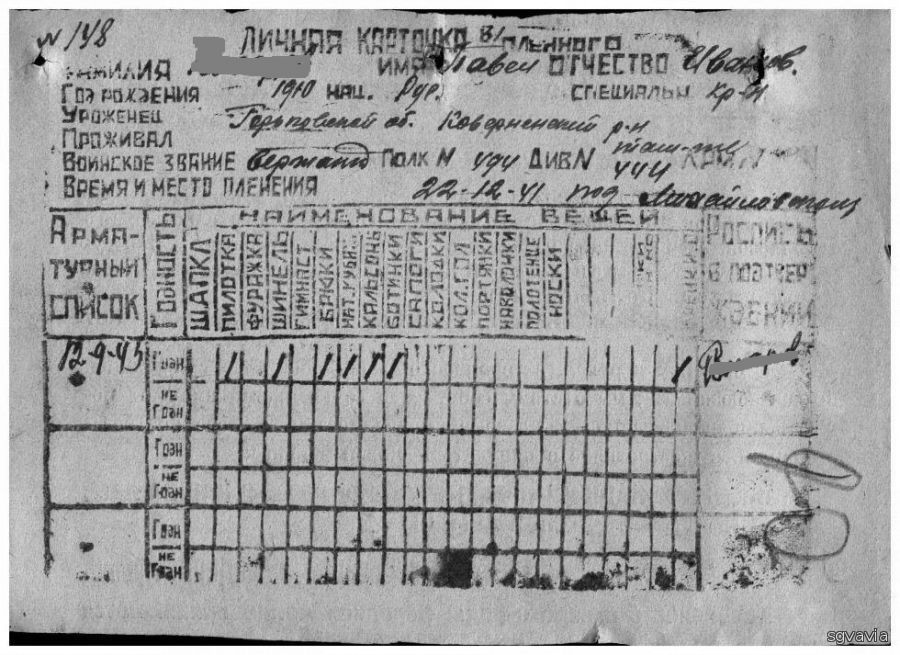 № 148
ЛИЧНАЯ КАРТОЧКА В/ПЛЕННОГО
ФАМИЛИЯ ИМЯ Павел ОТЧЕСТВО Иванов.
ГОД РОЖДЕНИЯ 1910 НАЦ. Рус. СПЕЦИАЛЬН Кр-н
УРОЖЕНЕЦ Горьковской об. Ковернинский р-н
ПРОЖИВАЛ там-же
ВОИНСКОЕ ЗВАНИЕ Сержант ПОЛК N ДИВ N 444
ВРЕМЯ И МЕСТО ПЛЕНЕНИЯ 22-12-41 под
АРМАТУРНЫЙ СПИСОК ГОДНОСТЬ НАИМЕНОВАНИЕ ВЕЩЕЙ РОСПИСЬ В ПОДТВЕРЖДЕНИИ
ШАПКА ПИЛОТКА ФУРАЖКА ШИНЕЛЬ ГИМНАСТ БРЮКИ НАТ. РУБАХ КАЛЬСОНЫ БОТИНКИ САПОГИ КОЛОДКИ ПОРТЯНКИ НАВОЛОЧКИ ПОЛОТЕНЦЕ НОСКИ
12-9-45 ГОДН 1 1 1 1 1 1 1
НЕ ГОДН
ГОДН
НЕ ГОДН
ГОДН
НЕ ГОДН
sgvavia